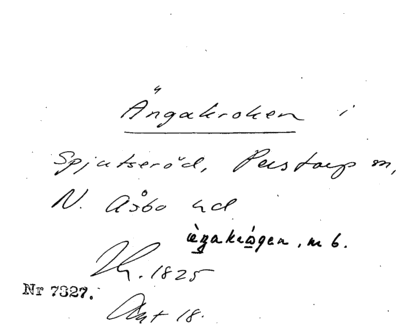 Ängakroken i
Spjutseröd, Perstorp sn,
N. Åsbo hd
ängakrogen, m b.
1825
Nr 7327.
Akt 18.